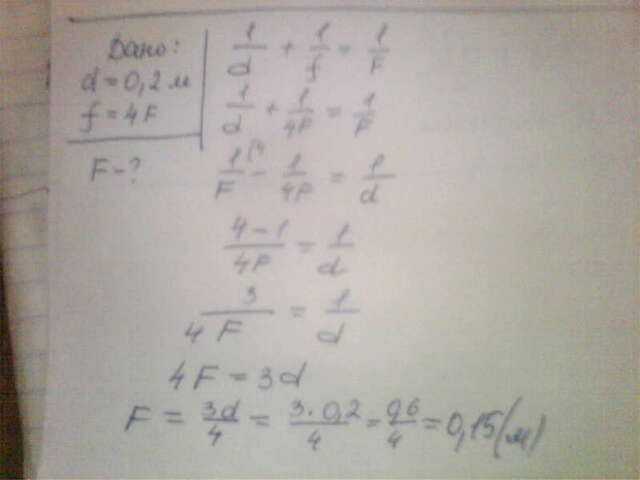 Дано:
d = 0,2 м
f = 4F
F - ?
1/d + 1/f = 1/F
1/d + 1/4F = 1/F
1/F (4 - 1/4F = 1/d
4 - 1/4F = 1/d
3/4F = 1/d
4F = 3d
F = 3d/4 = 3 · 0,2/4 = 0,6/4 = 0,15 (м)